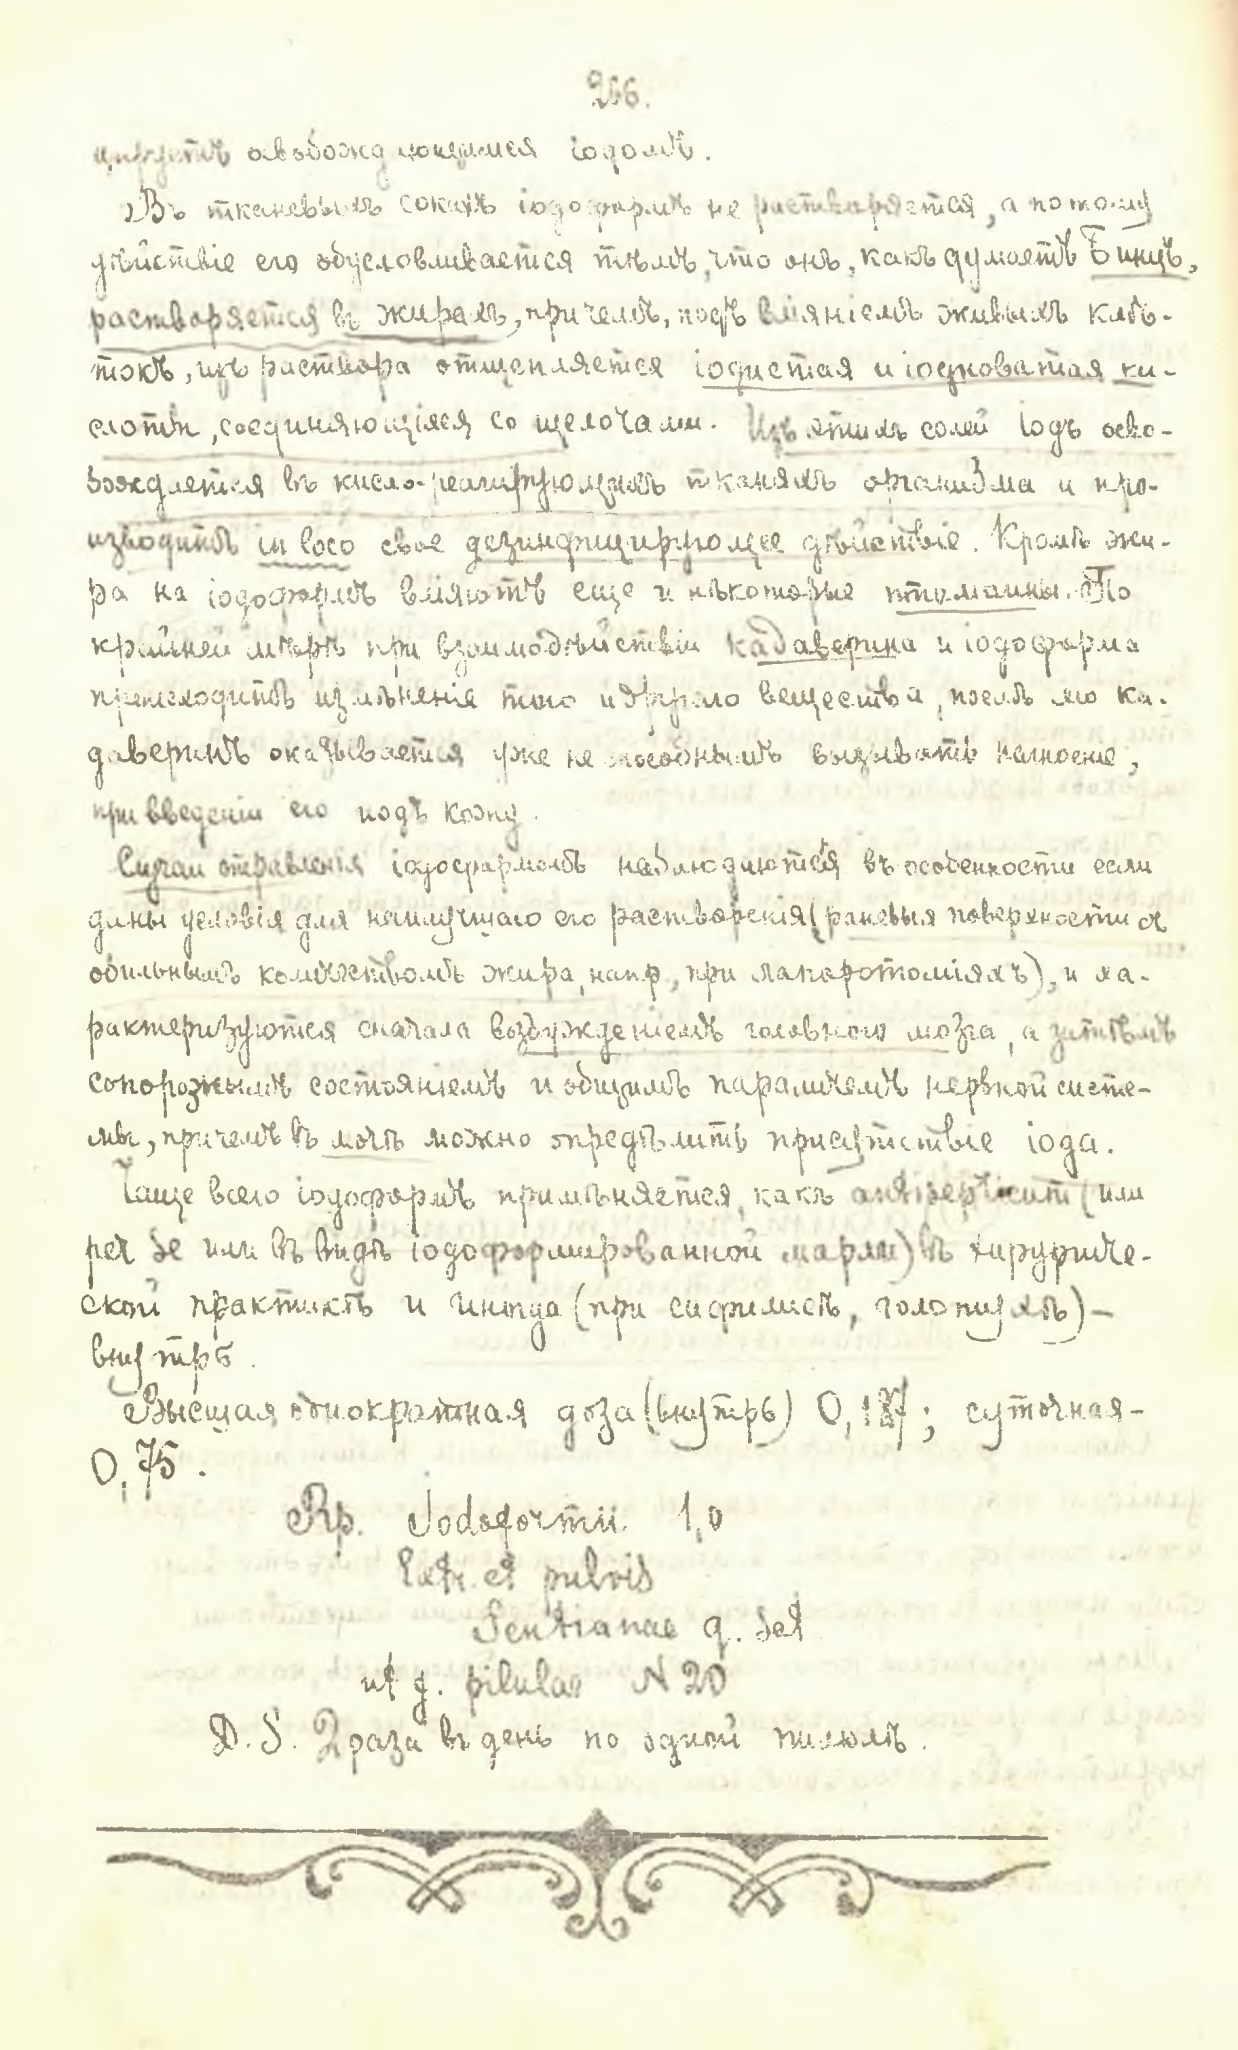 266.
цируетъ освобождающимся іодомъ.
Въ тканевыхъ сокахъ іодоформъ не растворяется, а потому
дѣйствіе его обусловливается тѣмъ, что онъ, какъ думаетъ Бинцъ,
растворяется въ жирахъ, причемъ, подъ вліяніемъ живыхъ клѣ-
токъ, изъ раствора отщепляется іодистая и іодноватая ки-
слоты, соединяющіяся со щелочами. Изъ этихъ солей іодъ осво-
бождается въ кисло-реагирующихъ тканяхъ организма и про-
изводитъ in loco свое дезинфицирующее дѣйствіе. Кромѣ жи-
ра на іодоформъ вліяютъ еще и нѣкоторые птомаины. По
крайней мѣрѣ при взаимодѣйствіи кадаверина и іодоформа
происходитъ измѣненіе того и другого вещества, послѣ чего ка-
даверинъ оказывается уже не способнымъ вызывать нагноеніе,
при введеніи его подъ кожу.
Случаи отравленія іодоформомъ наблюдаются въ особенности если
даны условія для наилучшаго его растворенія (раневыя поверхности съ
обильнымъ количествомъ жира, напр, при лапаротоміяхъ), и ха-
рактеризуются сначала возбужденіемъ головного мозга, а затѣмъ
сопорознымъ состояніемъ и общимъ параличемъ нервной систе-
мы, причемъ въ мочѣ можно опредѣлить присутствіе іода.
Чаще всего іодоформъ примѣняется, какъ antisepticum (или
per se или въ видѣ іодоформированной марли) въ хирургиче-
ской практикѣ и иногда (при сифилисѣ, золотухѣ)-
внутрь.
Высшая однократная доза (внутрь) 0,187; суточная-
0,75.
Rp. Jodoformii 1,0
Extr. et pulvis
Gentianae q. sat
ut f. pilulae N 20
D. S. 2 раза въ день по одной пилюлѣ.